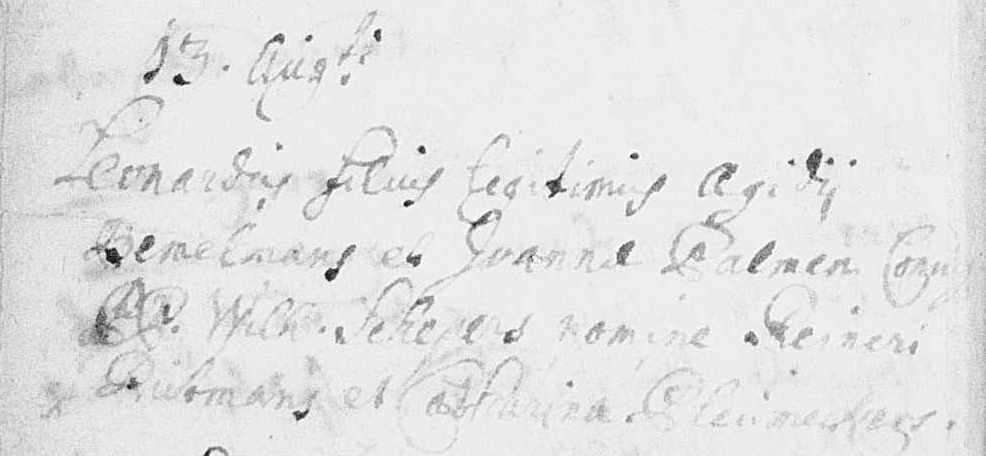 13. Augsti
Leonardus filius legitimus Ægidij
Bemelmans et Joanna Palmen Conju
PP. Wilh. Schepers nomine Reineri
et Catharina Pleumeckers.